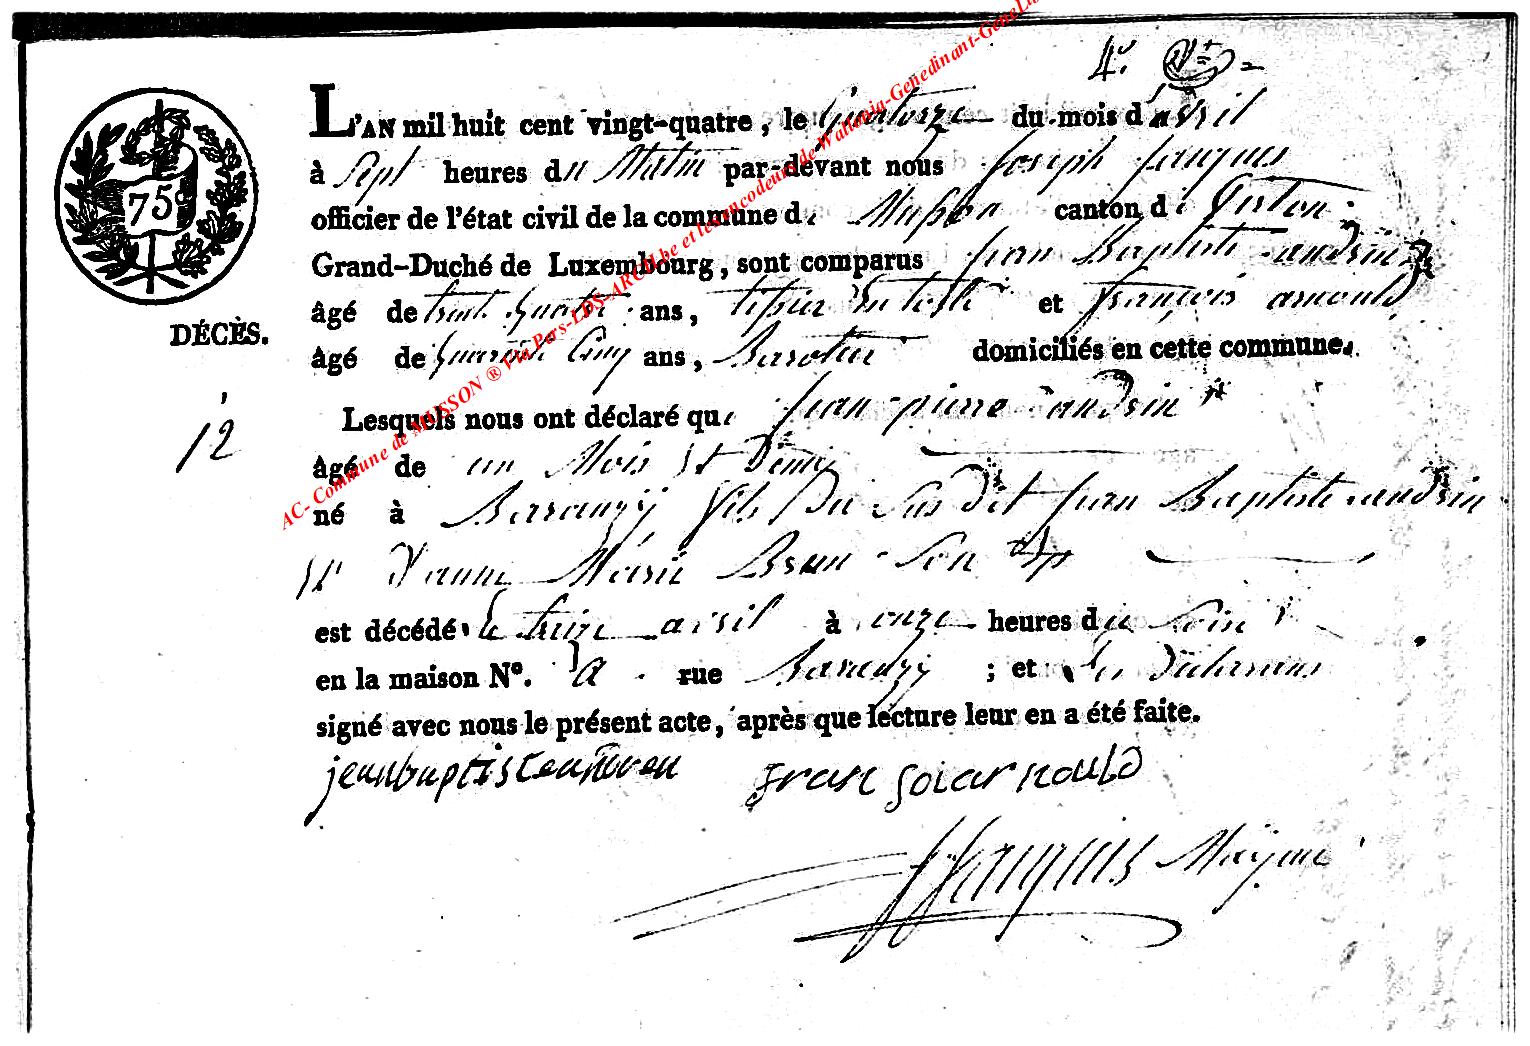 4.
L'AN mil huit cent vingt-quatre, le Quatorze du mois d'avril
à Sept heures du Matin par-devant nous Joseph Jacques
officier de l'état civil de la commune de Musson canton de Virton
Grand-Duché de Luxembourg, sont comparus Jean Baptiste andrin
âgé de trent Quatre ans, tissier en toille et françois arnould
âgé de Quarante Cinq ans, domiciliés en cette commune.
75
DÉCÈS.
12
Lesquels nous ont déclaré que jean-pierre andrin
âgé de un Mois et Demy
né à Baranzy fils Du Sus Dit jean Baptiste andrin
et D'anne Marie Brun Son
est décédé le treize avril à onze heures du Soir
en la maison N°. rue Baranzy ; et les Déclarans
signé avec nous le présent acte, après que lecture leur en a été faite.
jeanbaptiste
fran soiarnould
JJacques Mayeur
AC- Commune de MUSSON ® Via Pers-LDS-ARCH.be et les encodeurs de Wallonia-Genedinant-GeneLux